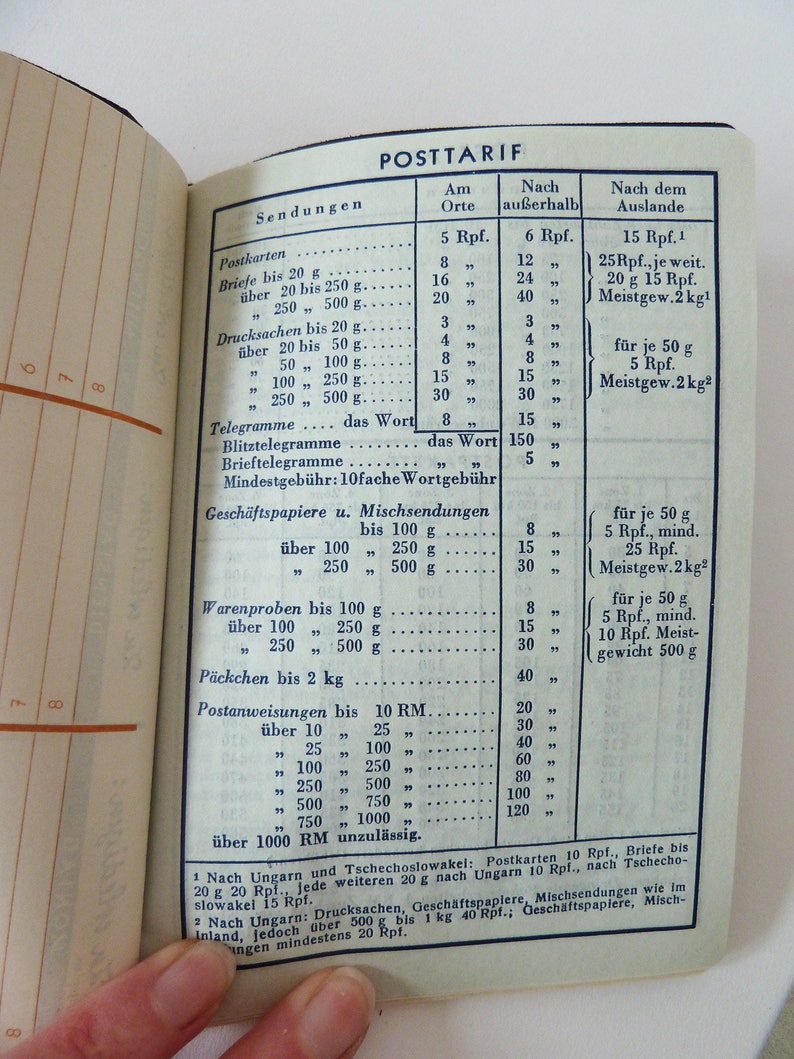 POSTTARIF
Sendungen Am Orte Nach außerhalb Nach dem Auslande
Postkarten .............. 5 Rpf. 6 Rpf. 15 Rpf.¹
Briefe bis 20 g .......... 8 „ 12 „ 25Rpf., je weit.
über 20 bis 250 g...... 16 „ 24 „ 20 g 15 Rpf.
„ 250 „ 500 g...... 20 „ 40 „ Meistgew. 2 kg¹
Drucksachen bis 20 g...... 3 „ 3 „
über 20 bis 50 g...... 4 „ 4 „ für je 50 g
„ 50 „ 100 g...... 8 „ 8 „ 5 Rpf.
„ 100 „ 250 g...... 15 „ 15 „ Meistgew. 2 kg²
„ 250 „ 500 g...... 30 „ 30 „
Telegramme .... das Wort 8 „ 15 „
Blitztelegramme ........ das Wort 150 „
Brieftelegramme ........ „ „ 5 „
Mindestgebühr: 10fache Wortgebühr
Geschäftspapiere u. Mischsendungen für je 50 g
bis 100 g ...... 8 „ 5 Rpf., mind.
über 100 „ 250 g ...... 15 „ 25 Rpf.
„ 250 „ 500 g ...... 30 „ Meistgew. 2 kg²
Warenproben bis 100 g ............ 8 „ für je 50 g
über 100 „ 250 g ............ 15 „ 5 Rpf., mind.
„ 250 „ 500 g ............ 30 „ 10 Rpf. Meist-
gewicht 500 g
Päckchen bis 2 kg ................ 40 „
Postanweisungen bis 10 RM........ 20 „
über 10 „ 25 „ ........ 30 „
„ 25 „ 100 „ ........ 40 „
„ 100 „ 250 „ ........ 60 „
„ 250 „ 500 „ ........ 80 „
„ 500 „ 750 „ ........ 100 „
„ 750 „ 1000 „ ........ 120 „
über 1000 RM unzulässig.
¹ Nach Ungarn und Tschechoslowakei: Postkarten 10 Rpf., Briefe bis
20 g 20 Rpf., jede weiteren 20 g nach Ungarn 10 Rpf., nach Tschecho-
slowakei 15 Rpf.
² Nach Ungarn: Drucksachen, Geschäftspapiere, Mischsendungen wie im
Inland, jedoch über 500 g bis 1 kg 40 Rpf.; Geschäftspapiere, Misch-
ungen mindestens 20 Rpf.
6
7
8
7
8
8